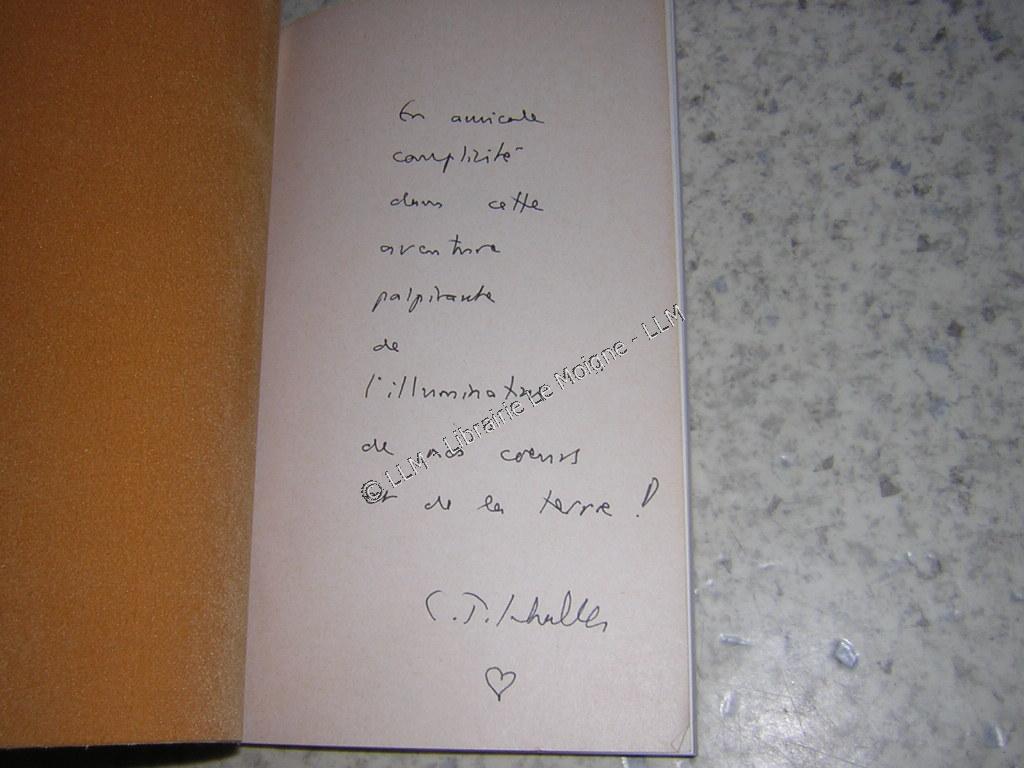 En amicale
complicité
dans cette
aventure
palpitante
de
l'illumination
de nos coeurs
et de la terre !
C.J. Schaller
© LLM - Librairie Le Moigne - LLM